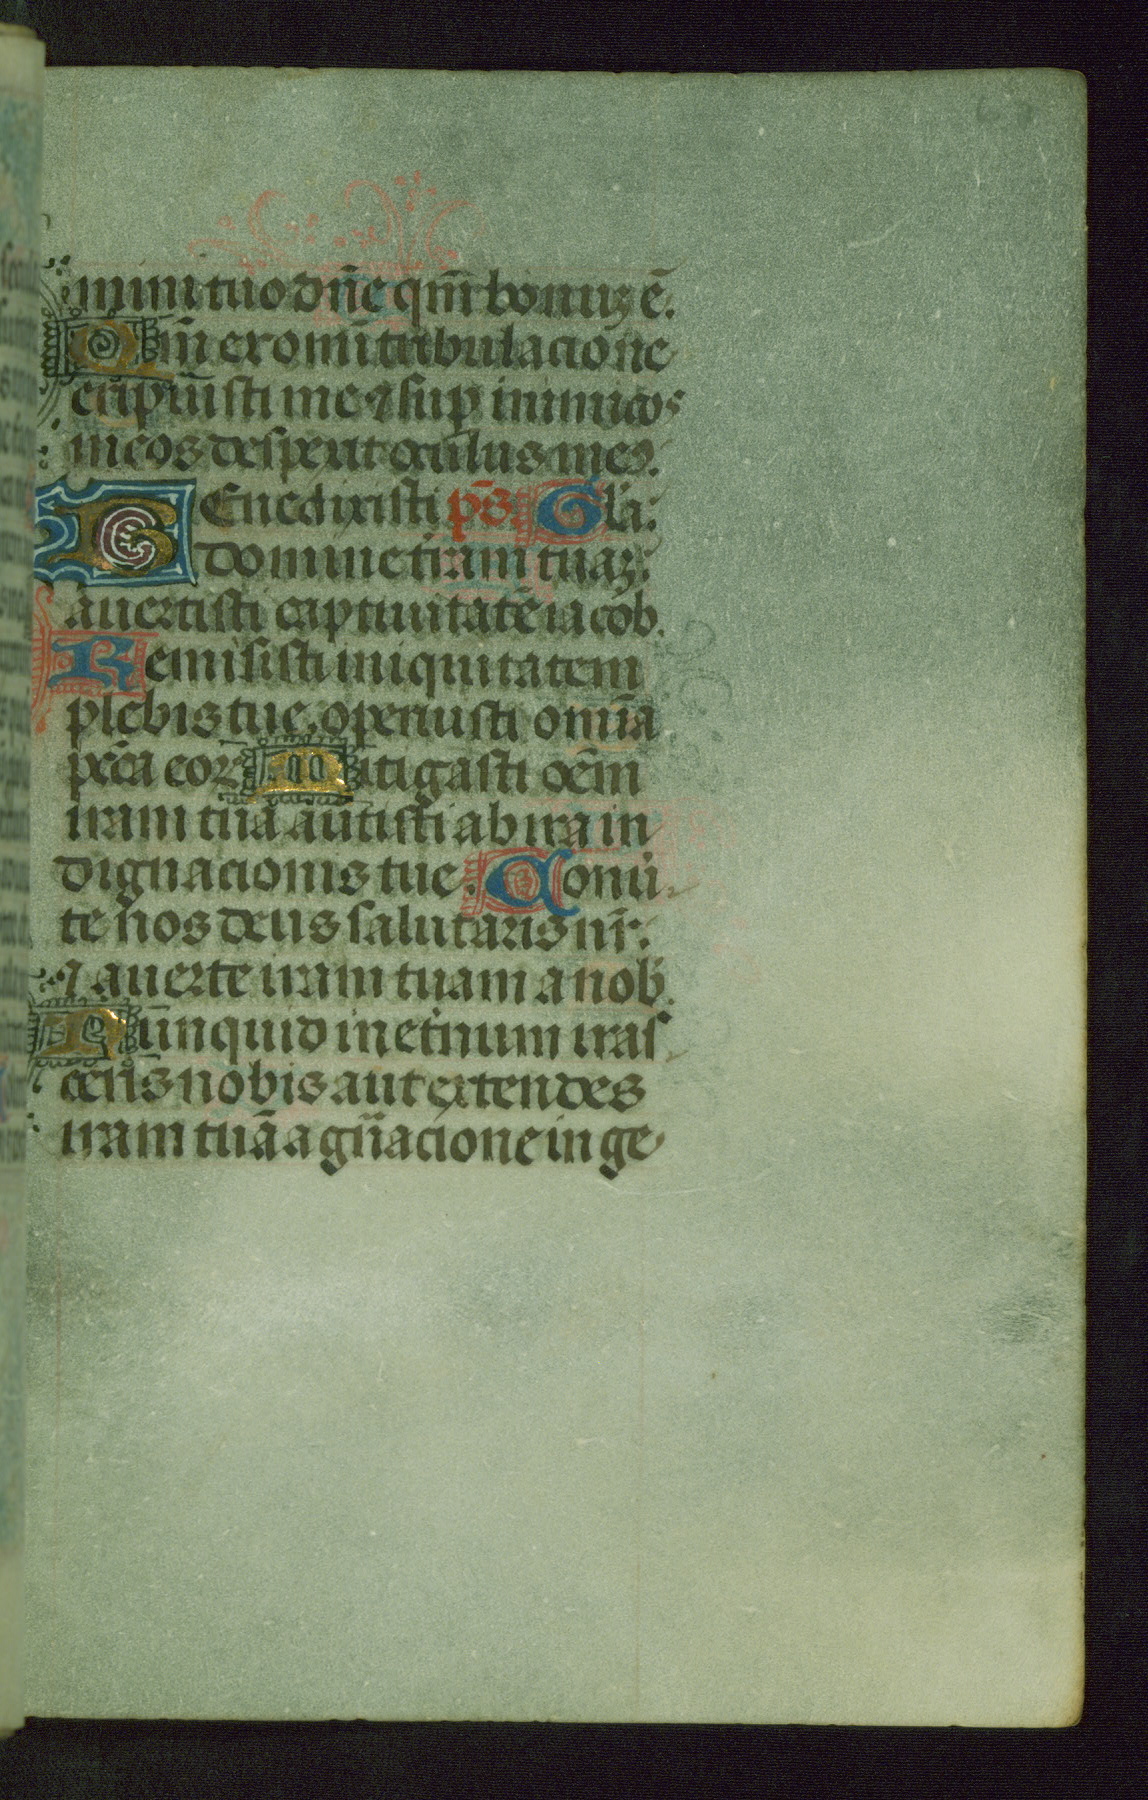 mini tuo dn̄e qm̄ bonuꝫ ē.
Qm̄ ex om̄i tribulacione
eripuisti me ⁊ suꝑ inimicos
meos desperit oculus meꝰ.
BEnedixisti ps̄. Gl̄a:
domine t̄ram tuaꝫ:
auertisti captiuitatē iacob.
Remisisti iniquitatem
plebis tue, operuisti omīa
pec̄a eoꝝ Mitigasti oēm
iram tuā au̇tisti ab ira in
dignacionis tue. Conu̇
te nos deus salutaris nr̄:
⁊ auerte iram tuam a nob̄.
Nunquid in et̄num iras
ceris nobis aut extendes
iram tuā a gn̄acione in ge